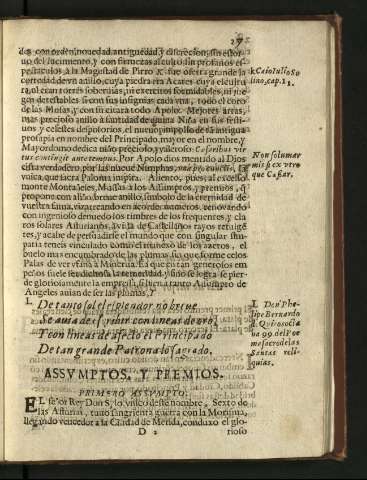 dos con orden, novedad antiguedad y discrecion, sin estor
uo del lucimiento, y con firmezas al culto sin profanos es-
pectaculos à la Magestad de Pirro fue oferta grande la
cortedad de vn anillo, cuya piedra era Acates cuya escultu
ra, ni eran torres soberuias, ni exercitos formidables, ni jue
gos detestables si con sus insignias cada vna, todo el coro
de las Musas, y con su citara todo Apolo. Mejores aras,
mas precioso anillo à santidad de
y celestes desposorios, el nueuo pimpollo de la antigua
prosapia en nombre del Principado, mayor en el nombre, y
Mayordomo dedica niño precioso, y valeroso: Cæsaribus vir
tus contingit ante tempus. Por Apolo dios mentido al Dios
cierto verdadero, por las nueue Nimphas,
vnica, que sacra Paloma inspira. Aliento, pues, al excelso
monte Montañeses, Musas à los Assumptos, y premios, q
propone con anillo, forme anillo, simbolo de la eternidad de
vuestra fama, vizarreando en
con ingenioso denuedo los timbres de los frequentes, y cla
ros solares Asturianos, à vista de Castellanos rayos refulgē
tes, y acabe de persuadirse el mundo que con singular simpatia teneis vinculado como el manexo de los azeros, el
buelo mas encumbrado de las plumas
Palas de ver fama à Minerua. Ea que en tan generosos em
peños suele ser dichosa la temeridad, y sino se logra se pier
de gloriosamente la empresa, si bien a tanto Assumpto de
Angeles auian de ser las plumas, Y
L De tanto sol el esplendor noble
Se auia de escriuir con lineas de oro,
Y con lineas de afecto el Principado
De tan grande Patrona lo sagrado.
ASSVMPTOS, Y PREMIOS.
PRIMERO ASSVMPTO.
EL señor Rey Don Silo vnico deste nombre, Sexto de
las Asturias, tuuo sangrienta guerra con la Morisma,
llegando vencedor à la Ciudad de Merida, conduxo el glo-
D 2
rioso
K Caio Iulio So
lino, cap. 11.
Non solum ar
mis sex vtro
que Cæsar.
L Don Phe-
lipe Bernardo
d Quiros octa
ba 99. del Poe
ma sacro de las
Santas reli-
quias.